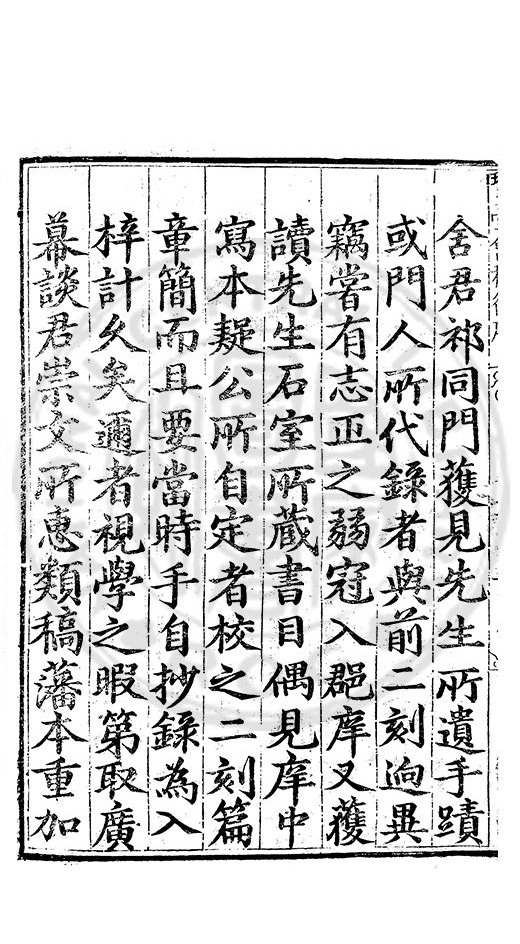 舍君祁同門獲見先生所遺手蹟
或門人所代錄者與前二刻逈異
竊嘗有志正之弱冠入郡庠又獲
讀先生石室所藏書目偶見庠中
寫本疑公所自定者校之二刻篇
章簡而且要當時手自抄錄為入
梓計久矣邇者視學之暇第取廣
幕談君崇文所惠類稿藩本重加